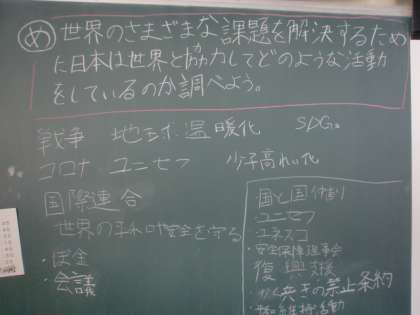 め 世界のさまざまな課題を解決するため
に日本は世界と協力してどのような活動
をしているのか調べよう。
戦争 地球温暖化 SDGs
コロナ ユニセフ 少子高れい化
国際連合
世界の平和や安全を守る
・ぼ金
・会議
国と国
・ユニセフ
・ユネスコ
・安全保障理事会
復興支援
・かく 禁止条約
・平和維持活動